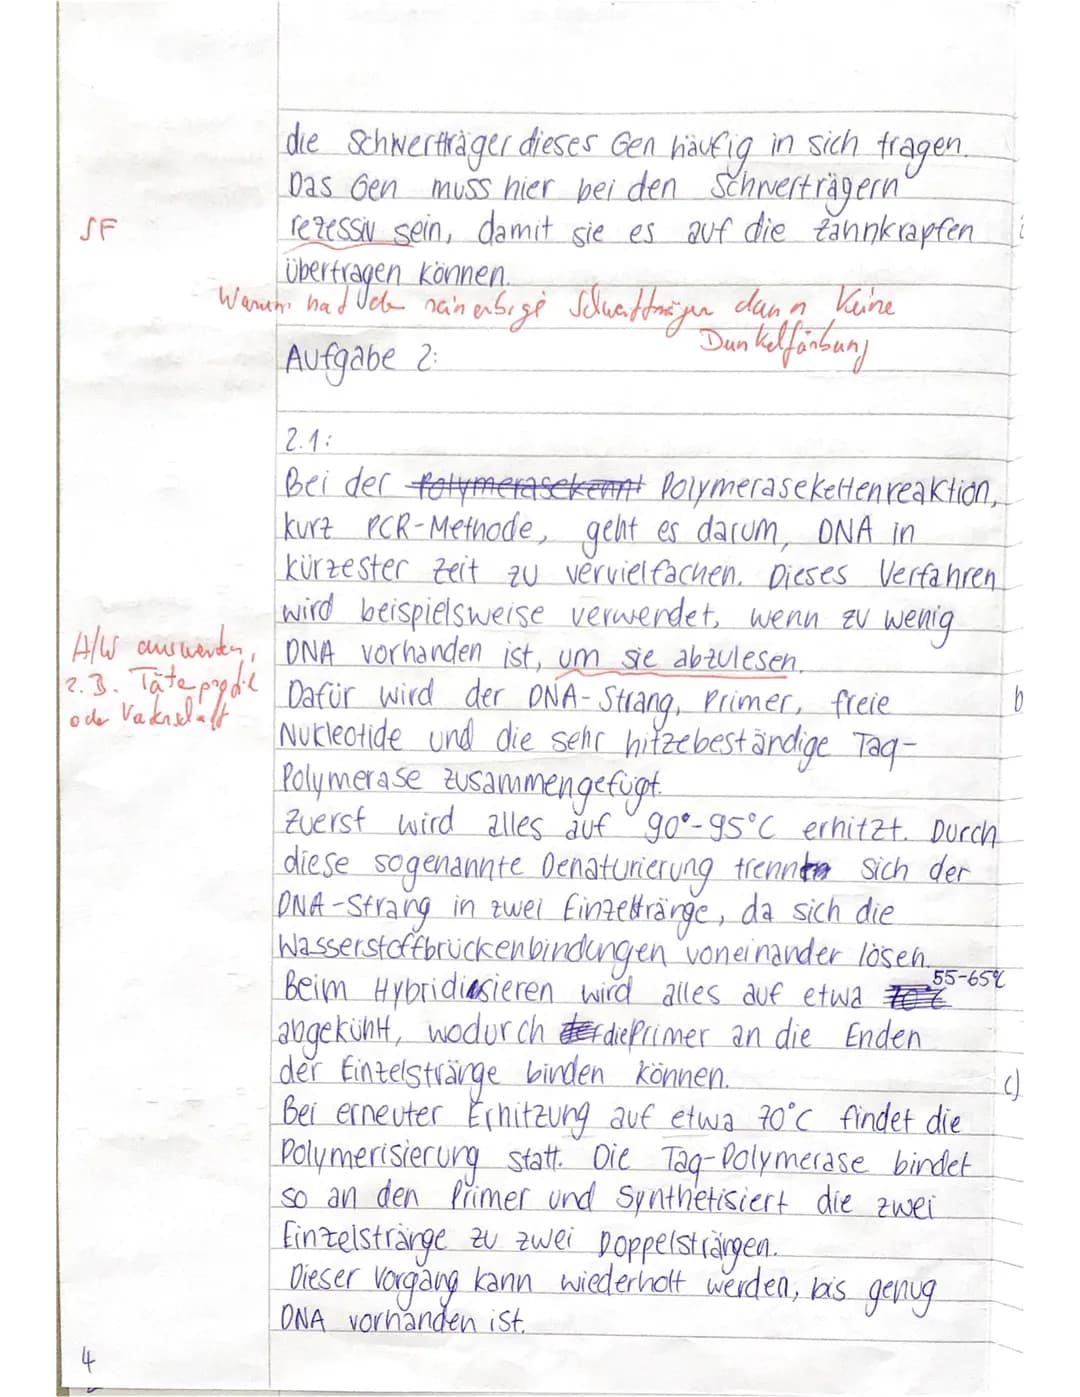 die Schwertträger dieses Gen häufig in sich tragen.
Das Gen muss hier bei den Schwertträgern
SF
rezessiv sein, damit sie es auf die Zahnkrapfen
übertragen können.
Warum hat der reinerbige Schwertträger dann keine
Dunkelfärbung
Aufgabe 2:
2.1:
Bei der Polymerasekennt Polymerasekettenreaktion,
kurz PCR-Methode, geht es darum, DNA in
kürzester Zeit zu vervielfachen. Dieses Verfahren
wird beispielsweise verwendet, wenn zu wenig
A/W auswerten,
DNA vorhanden ist, um sie abzulesen.
z.B. Täterprofil
Dafür wird der DNA-Strang, Primer, freie
b
oder Vaterschaft
Nukleotide und die sehr hitzebeständige Taq-
Polymerase zusammengefügt.
Zuerst wird alles auf 90°-95°C erhitzt. Durch
diese sogenannte Denaturierung trennt sich der
DNA-Strang in zwei Einzeltränge, da sich die
Wasserstoffbrückenbindungen voneinander lösen.
55-65°C
Beim Hybridisieren wird alles auf etwa
abgekühlt, wodurch die Primer an die Enden
der Einzelstränge binden können.
c)
Bei erneuter Erhitzung auf etwa 70°C findet die
Polymerisierung statt. Die Taq-Polymerase bindet
so an den Primer und synthetisiert die zwei
Einzelstränge zu zwei Doppelsträngen.
Dieser Vorgang kann wiederholt werden, bis genug
DNA vorhanden ist.
4